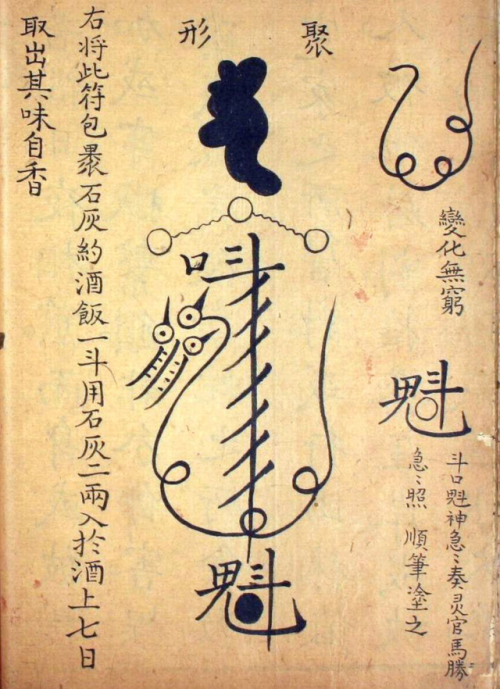 變化無窮
魁
斗口魁神急〻奏灵官馬勝
急〻照 順筆塗之
聚形
𠮟
魁
右将此符包褁石灰約酒飯一斗用石灰二兩入於酒上七日
取出其味自香